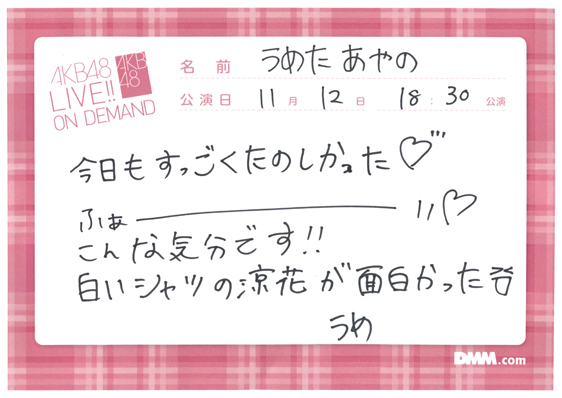 AKB48
LIVE!!
ON DEMAND
AKB
48
名前 うめた あやの
公演日 11月 12日 18:30 公演
今日もすっごくたのしかった♡
ふぁ――――――!!♡
こんな気分です!!
白いシャツの涼花が面白かった
うめ
DMM.com